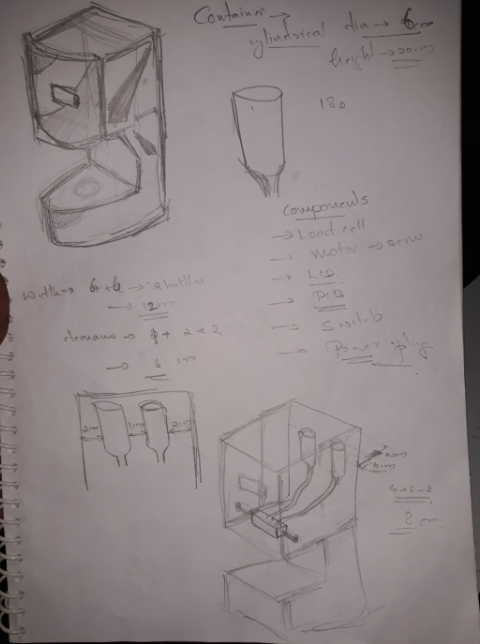 Container →
cylindrical dia → 6cm
height → 20cm
180
components
→ Load cell
→ motor → serv.
→ LID.
→ PCB
→ Switch
→ Power plug
width → 6+6 →
→ 12cm
clearance → + 2+2
→ 6 cm
2cm
2cm
8 cm